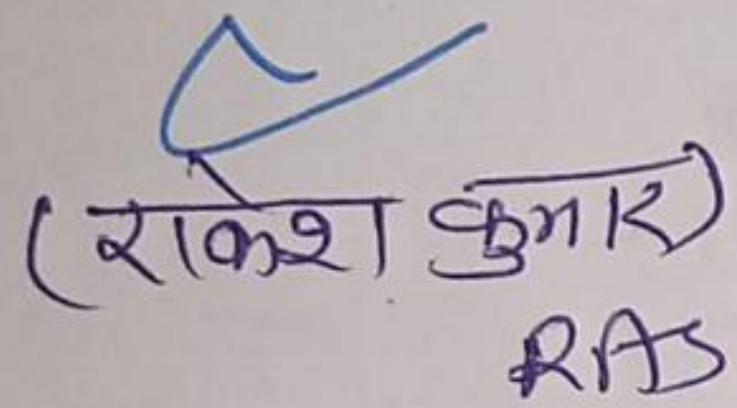 (राकेश कुमार)
RAS